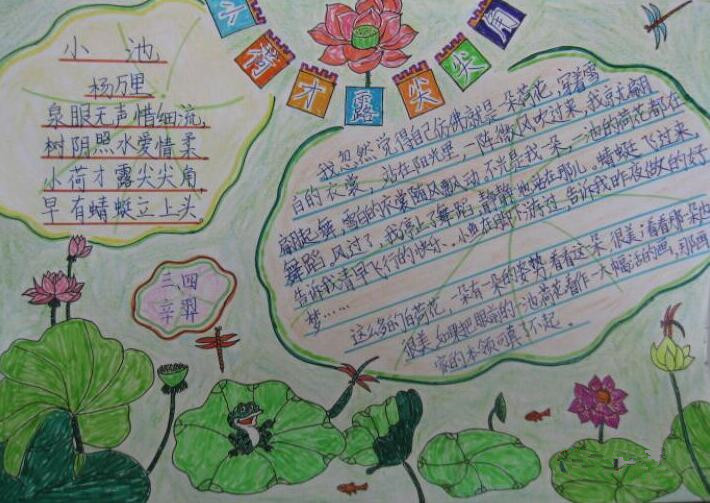 小荷才露尖尖角
小池
杨万里
泉眼无声惜细流，
树阴照水爱情柔。
小荷才露尖尖角，
早有蜻蜓立上头。
三、四
辛羿
我忽然觉得自己仿佛就是一朵荷花，穿着雪
白的衣裳，站在阳光里，一阵微风吹过来，我就翩
翩起舞，雪白的衣裳随风飘动，不光是我一朵，一池的荷花都在
舞蹈，风过了，我停止了舞蹈，静静地站在那儿。蜻蜓飞过来，
告诉我清早飞行的快乐。小鱼在脚下游过，告诉我昨夜做的好
梦……
这么多的白荷花，一朵有一朵的姿势，看看这朵，很美；看看那朵，也
很美。如果把眼前的一池荷花看作一大幅活的画，那画
家的本领可真了不起。